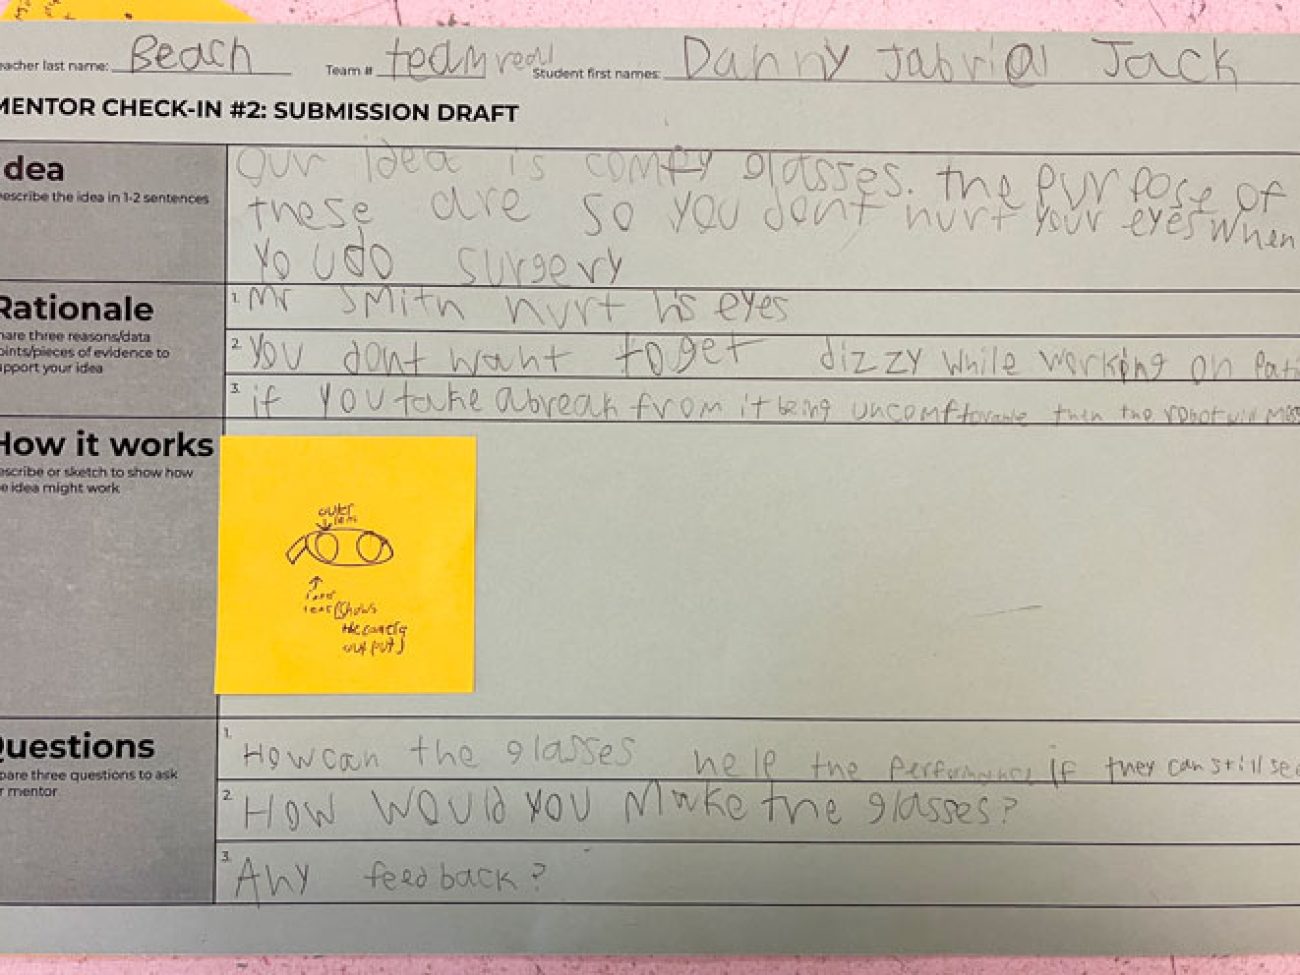 eacher last name: Beach Team # team real Student first names: Danny Jabrial Jack
MENTOR CHECK-IN #2: SUBMISSION DRAFT
dea
escribe the idea in 1-2 sentences
our idea is comfy glasses. the purpose of
these are so you dont hurt your eyes when
you do surgery
Rationale
hare three reasons/data
oints/pieces of evidence to
upport your idea
1. Mr Smith hurt his eyes
2. You dont want to get dizzy while working on Pati
3. if you take a break from it being uncomftorable then the robot will mess
How it works
escribe or sketch to show how
e idea might work
outer
lens
lens (Shows
output)
Questions
pare three questions to ask
r mentor
1. How can the glasses help the performance if they can still see
2. How would you make the glasses?
3. Any feedback?